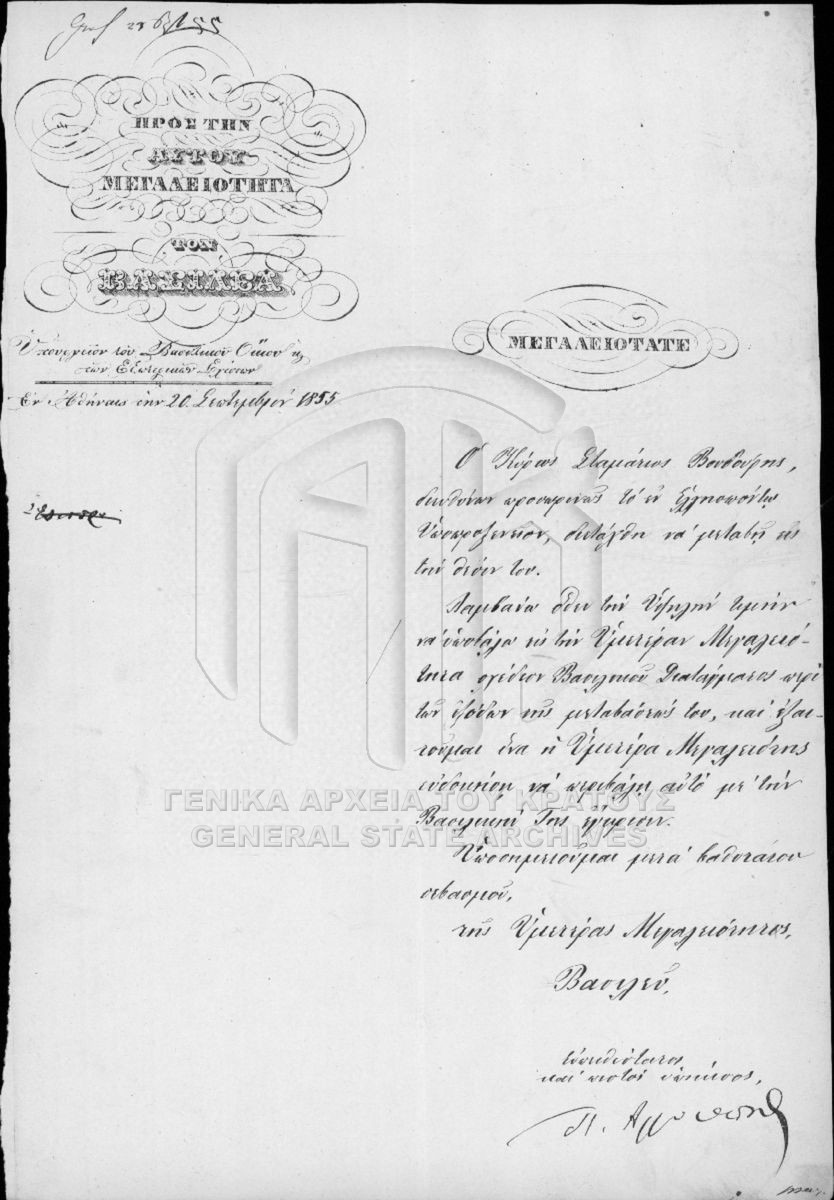 ΠΡΟΣ ΤΗΝ
ΑΥΤΟΥ
ΜΕΓΑΛΕΙΟΤΗΤΑ
ΤΟΝ
ΒΑΣΙΛΕΑ
Ὑπουργεῖον τοῦ Βασιλικοῦ Οἴκου κ
τῶν Ἐξωτερικῶν Σχέσεων
Ἐν Ἀθήναις τὴν 20 Σεπτεμβρίου 1855
ΜΕΓΑΛΕΙΟΤΑΤΕ
Ὁ Κύριος Σταμάτιος Βουδούρης,
διευθύνων προσωρινῶς τὸ ἐν Ἑλλησπόντῳ
Ὑποπροξενεῖον, διετάχθη νὰ μεταβῇ εἰς
τὴν θέσιν του.
Λαμβάνω ὅθεν τὴν Ὑψηλὴν τιμὴν
νὰ ὑποβάλω εἰς τὴν Ὑμετέραν Μεγαλειό-
τητα σχέδιον Βασιλικοῦ Διατάγματος περὶ
τῶν ἐξόδων τῆς μεταβάσεώς του, καὶ ἐξαι-
τοῦμαι ἵνα ἡ Ὑμετέρα Μεγαλειότης
εὐδοκήσῃ νὰ περιβάλῃ αὐτὸ μὲ τὴν
Βασιλικήν Της ἔγκρισιν.
Ὑποσημειοῦμαι μετὰ βαθυτάτου
σεβασμοῦ,
τῆς Ὑμετέρας Μεγαλειότητος,
Βασιλεῦ,
εὐπειθέστατος
καὶ πιστὸς ὑπήκοος,
ΓΕΝΙΚΑ ΑΡΧΕΙΑ ΤΟΥ ΚΡΑΤΟΥΣ
GENERAL STATE ARCHIVES